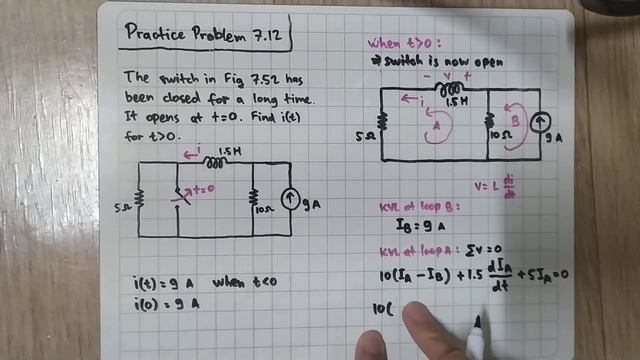 Practice Problem 7.12
The switch in Fig 7.52 has
been closed for a long time.
It opens at t=0. Find i(t)
for t>0.
i
1.5H
5Ω
t=0
10Ω
9 A
i(t) = 9 A when t<0
i(0) = 9 A
when t>0:
⇒ switch is now open
- v +
i
1.5H
5Ω
A
10Ω
B
9 A
v = L di/dt
KVL at loop B:
I_B = 9 A
KVL at loop A: Σv=0
10(I_A - I_B) + 1.5 dI_A/dt + 5I_A = 0
10(